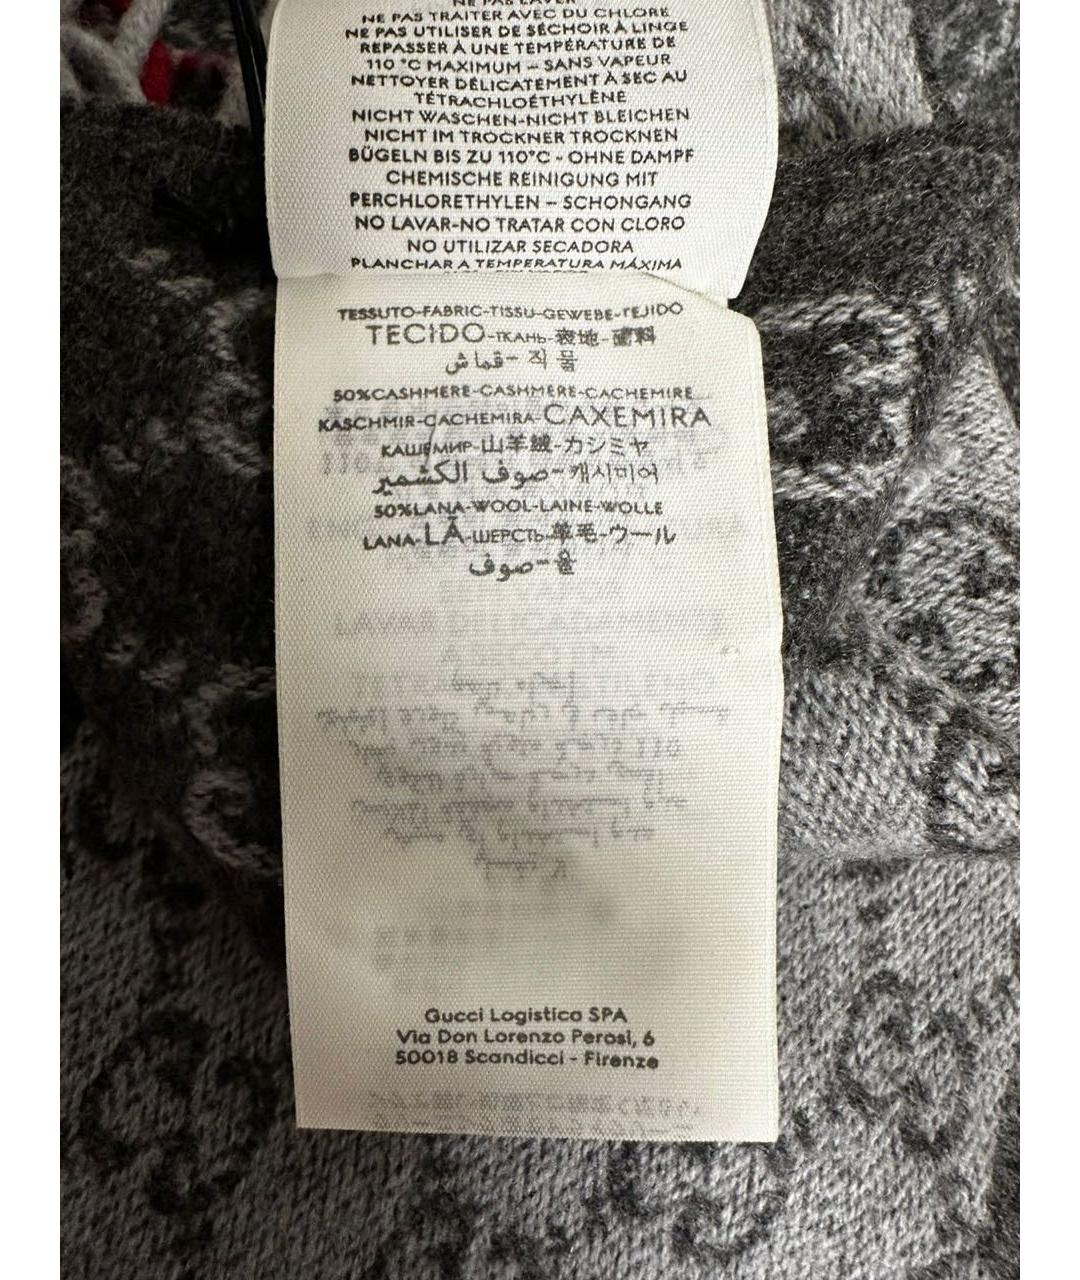 NE PAS LAVER
NE PAS TRAITER AVEC DU CHLORE
NE PAS UTILISER DE SÉCHOIR À LINGE
REPASSER À UNE TEMPÉRATURE DE
110 °C MAXIMUM – SANS VAPEUR
NETTOYER DÉLICATEMENT À SEC AU
TÉTRACHLOÉTHYLÈNE
NICHT WASCHEN-NICHT BLEICHEN
NICHT IM TROCKNER TROCKNEN
BÜGELN BIS ZU 110°C - OHNE DAMPF
CHEMISCHE REINIGUNG MIT
PERCHLORETHYLEN – SCHONGANG
NO LAVAR-NO TRATAR CON CLORO
NO UTILIZAR SECADORA
PLANCHAR A TEMPERATURA MÁXIMA
TESSUTO-FABRIC-TISSU-GEWEBE-TEJIDO
TECIDO-ТКАНЬ-表地-面料
قماش-직물
50%CASHMERE-CASHMERE-CACHEMIRE
KASCHMIR-CACHEMIRA-CAXEMIRA
КАШЕМИР-山羊絨-カシミヤ
صوف الكشمير-캐시미어
50%LANA-WOOL-LAINE-WOLLE
LANA-LÃ-ШЕРСТЬ-羊毛-ウール
صوف-울
Gucci Logistica SPA
Via Don Lorenzo Perosi, 6
50018 Scandicci - Firenze